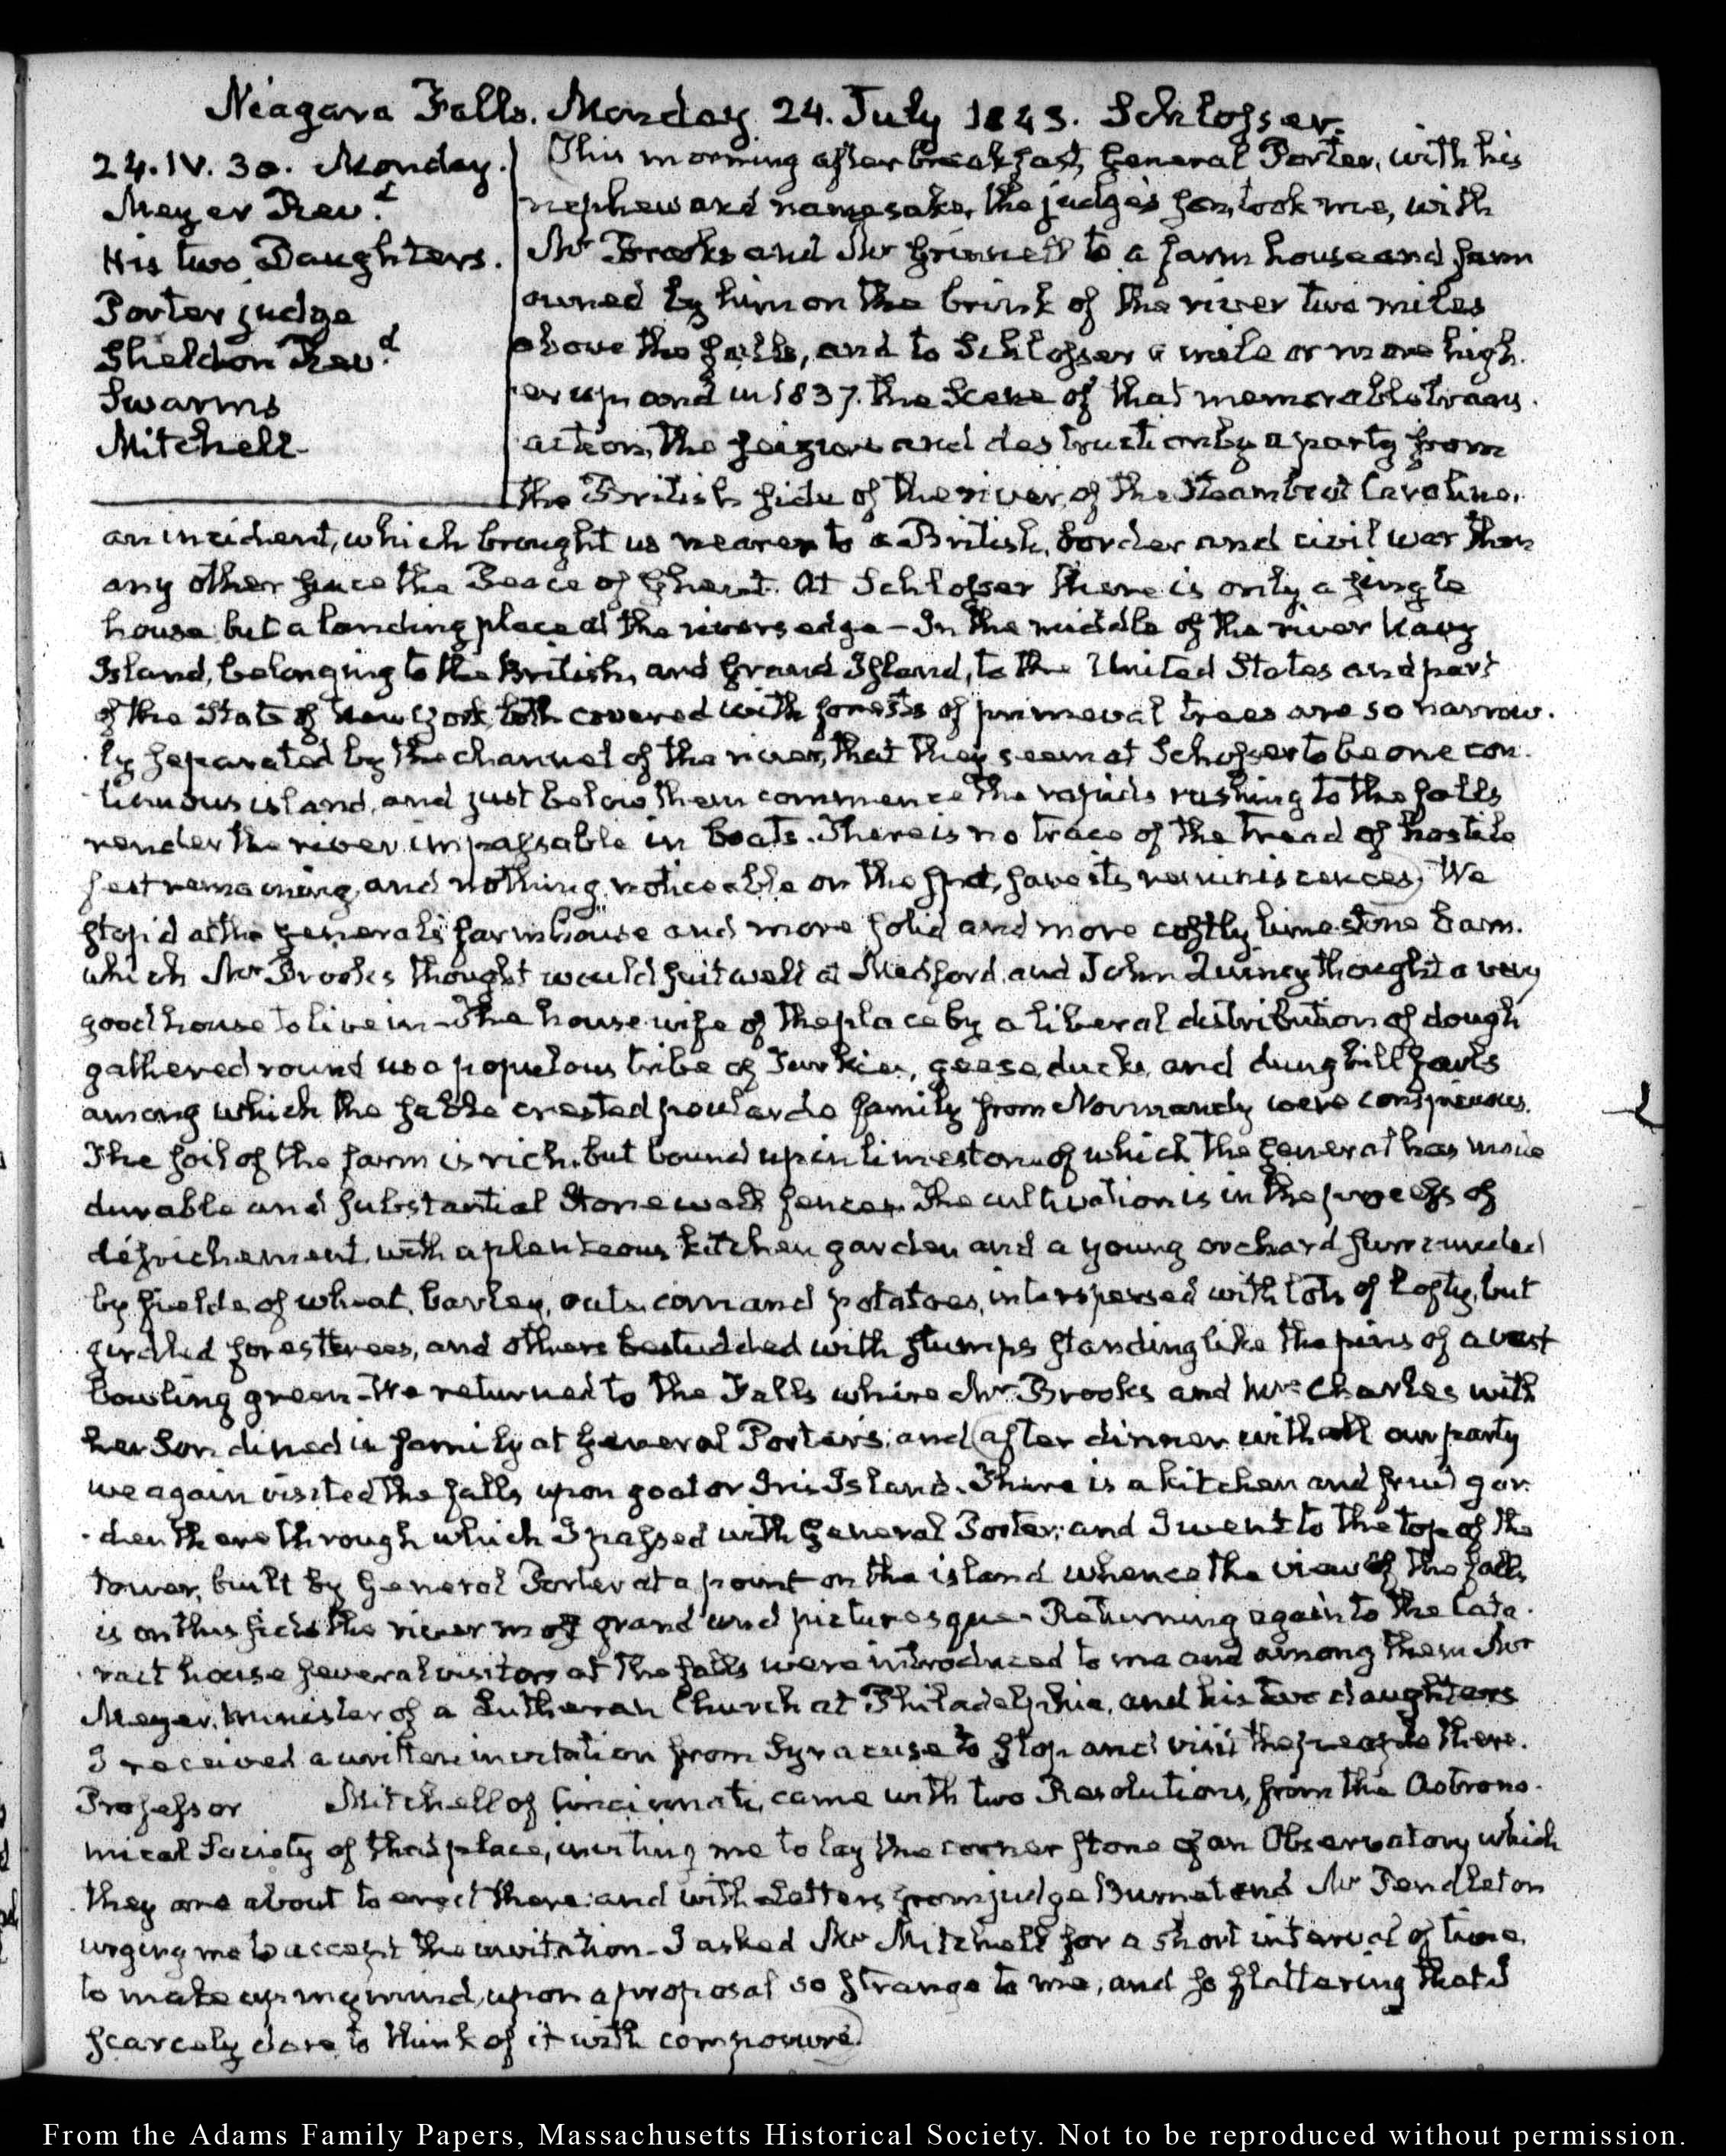 Niagara Falls. Monday 24. July 1843. Schlosser.
24. IV. 30. Monday.
Meyer Rev.d
His two Daughters.
Porter judge
Sheldon Rev.d
Swarms
Mitchell
This morning after breakfast, General Porter, with his
nephew and namesake, the judge's son, took me, with
Mr Brooks and Mr Grinnell to a farm house and farm
owned by him on the brink of the river two miles
above the falls, and to Schlosser a mile or more high-
er up and in 1837. the Scene of that memorable trans-
action, the seizure and destruction by a party from
the British side of the river, of the Steamboat Caroline.
an incident, which brought us nearer to a British, border and civil war than
any other since the Peace of Ghent. At Schlosser there is only a single
house but a landing place at the rivers edge – In the middle of the river Navy
Island, belonging to the British, and Grand Island, to the United States and part
of the State of New York, both covered with forests of primeval trees are so narrow-
ly separated by the channel of the river, that they seem at Schosser to be one con-
tinuous island, and just below them commence the rapids rushing to the falls
render the river impassable in boats. There is no trace of the tread of hostile
feet remaining, and nothing noticeable on the spot, save its reminiscences. We
stop'd at the general's farm house and more solid and more costly lime-stone barn.
which Mr Brooks thought would suit well at Medford, and John Quincy thought a very
good house to live in – The house wife of the place by a liberal distribution of dough
gathered round us a populous tribe of Turkies, geese, ducks, and dunghill fowls
among which the sable crested poularde family from Normandy were conspicuous.
The soil of the farm is rich, but bound up in limestone of which the General has made
durable and substantial stone wall fences. The cultivation is in the process of
défrichement, with a plenteous kitchen garden and a young orchard surrounded
by fields of wheat, barley, oats, corn and potatoes, interspersed with lots of lofty, but
girdled forest trees, and others bestudded with stumps standing like the pins of a vast
bowling green – We returned to the Falls where Mr Brooks and Mrs Charles with
her Son dined in family at General Porter's, and after dinner with all our party
we again visited the falls upon goat or Iris Island. There is a kitchen and fruit gar-
den there through which I passed with General Porter; and I went to the top of the
tower, built by General Porter at a point on the island whence the view of the falls
is on this side the river most grand and picturesque – Returning again to the Cata-
ract house several visitors at the falls were introduced to me and among them Mr
Meyer, minister of a Lutheran Church at Philadelphia, and his two daughters
I received a written invitation from Syracuse to stop and visit the people there.
Professor Mitchell of Cincinnati, came with two Resolutions, from the Astrono-
mical Society of that place, inviting me to lay the corner stone of an Observatory which
they are about to erect there: and with Letters from judge Burnet and Mr Pendleton
urging me to accept the invitation – I asked Mr Mitchell for a short interval of time,
to make up my mind, upon a proposal so strange to me, and so flattering that I
scarcely dare to think of it with composure.
From the Adams Family Papers, Massachusetts Historical Society. Not to be reproduced without permission.